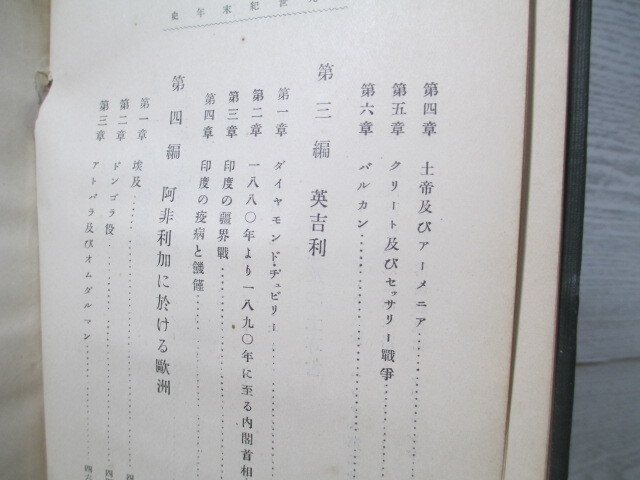 東年末紀世
第四章 土帝及びアーメニア
第五章 クリート及びセッサリー戰爭
第六章 バルカン
第三編 英吉利
第一章 ダイヤモンド・ヂュビリー
第二章 一八八〇年より一八九〇年に至る内閣首相
第三章 印度の疆界戰
第四章 印度の疫病と饑饉
第四編 阿非利加に於ける歐洲
第一章 埃及
第二章 ドンゴラ役
第三章 アトバラ及びオムダルマン